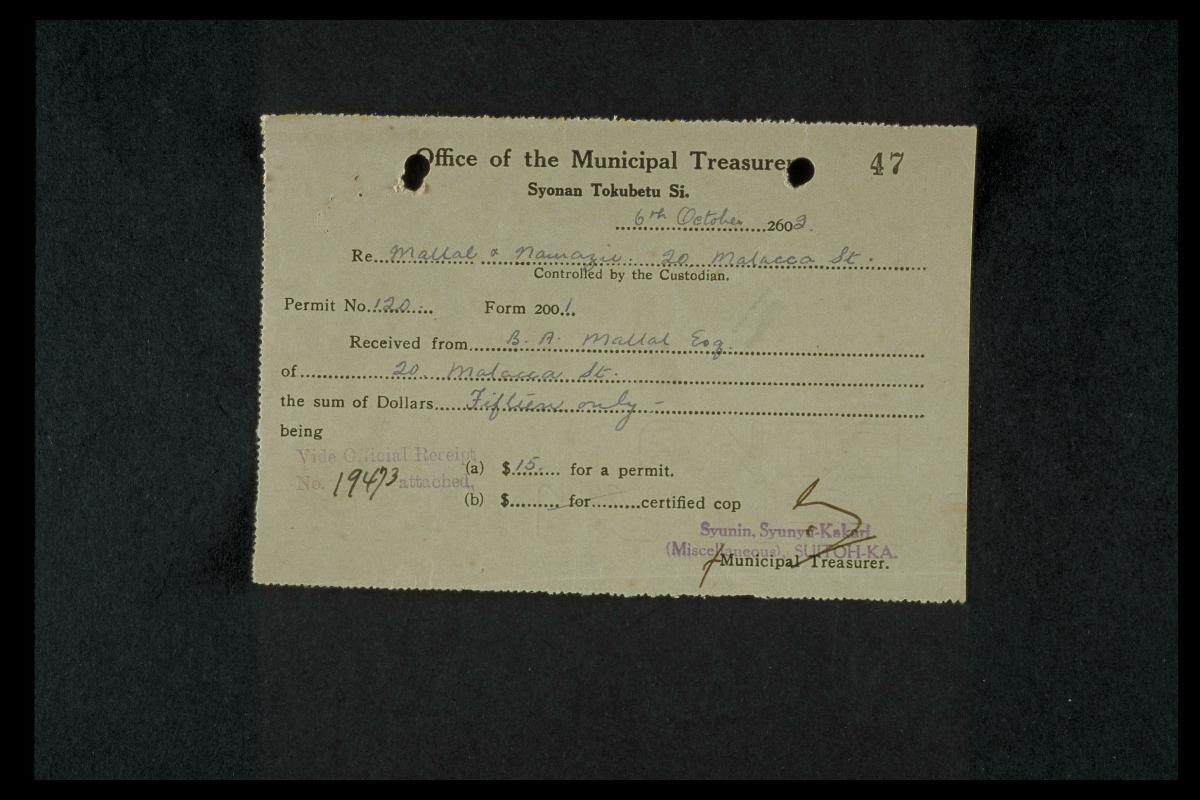 Office of the Municipal Treasurer 47
Syonan Tokubetu Si.
6th October 2602.
Re Mallal & Namazie. 20 Malacca St.
Controlled by the Custodian.
Permit No. 120. Form 200 1.
Received from B. A. Mallal Esq.
of 20. Malacca St.
the sum of Dollars Fifteen only –
being
Vide Official Receipt
No. 19473 attached,
(a) $ 15. for a permit.
(b) $ for certified cop
Syunin, Syunyu-Kakari
(Miscellaneous), SUITOH-KA.
Municipal Treasurer.